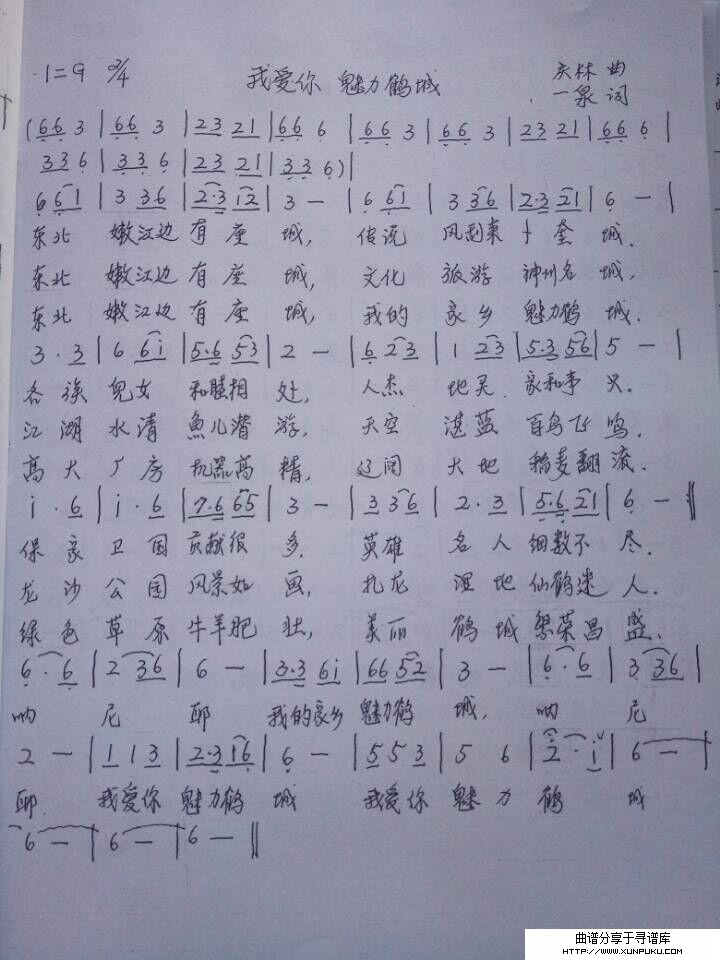 1=G 2/4 我爱你 魅力鹤城 庆林 曲
一泉 词
(6 6 3 | 6 6 3 | 2 3 2 1 | 6 6 6 | 6 6 3 | 6 6 3 | 2 3 2 1 | 6 6 6 |
3 3 6 | 3 3 6 | 2 3 2 1 | 3 3 6) |
6 6 1 | 3 3 6 | 2·3 1 2 | 3 — | 6 6 1 | 3 3 6 | 2·3 2 1 | 6 — |
东北 嫩江边 有 座 城, 传说 风刮来 卜 奎 城.
东北 嫩江边 有 座 城, 文化 旅游 神州名 城,
东北 嫩江边 有 座 城, 我的 家乡 魅力鹤 城.
3 · 3 | 6 6 i | 5·6 5 3 | 2 — | 6 2 3 | 1 2 3 | 5·3 5 6 | 5 — |
各 族 儿女 和睦相 处, 人杰 地灵 家和事 兴.
江 湖 水清 魚儿潜 游, 天空 湛蓝 百鸟飞 鸣,
高 大 厂房 机器高 精, 辽阔 大地 稻麦翻 滚.
i · 6 | i · 6 | 7·6 6 5 | 3 — | 3 3 6 | 2 · 3 | 5·6 2 1 | 6 — ‖
保 家 卫 国 贡献很 多, 英雄 名 人 细数不 尽.
龙 沙 公 园 风景如 画, 扎龙 湿 地 仙鹤迷 人.
绿 色 草 原 牛羊肥 壮, 美丽 鹤 城 繁荣昌 盛.
6 · 6 | 2 3 6 | 6 — | 3·3 6 i | 6 6 5 2 | 3 — | 6 · 6 | 3 3 6 |
呐 尼 耶 我的家乡 魅力鹤 城, 呐 尼
2 — | 1 1 3 | 2·3 1 6 | 6 — | 5 5 3 | 5 6 | 2 · i | 6 — |
耶. 我爱你 魅力鹤 城 我爱你 魅 力 鹤 城
6 — | 6 — | 6 — ‖
曲谱分享于寻谱库
HTTP://WWW.XUNPUKU.COM